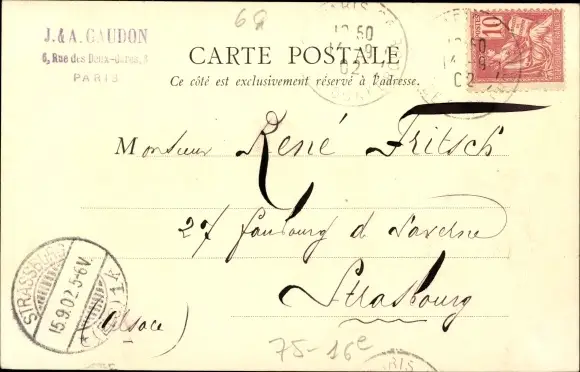 68
J. & A. GAUDON
6, Rue des Deux-Gares, 6
PARIS
CARTE POSTALE
Ce côté est exclusivement réservé à l'adresse.
PARIS
12 50
14 - 9
02
10
50
14 - 9
02
Monsieur René Fritsch
27 faubourg d Saverne
Strasbourg
(Alsace)
STRASSBURG
15.9.02.5-6V.
75-16e
PARIS